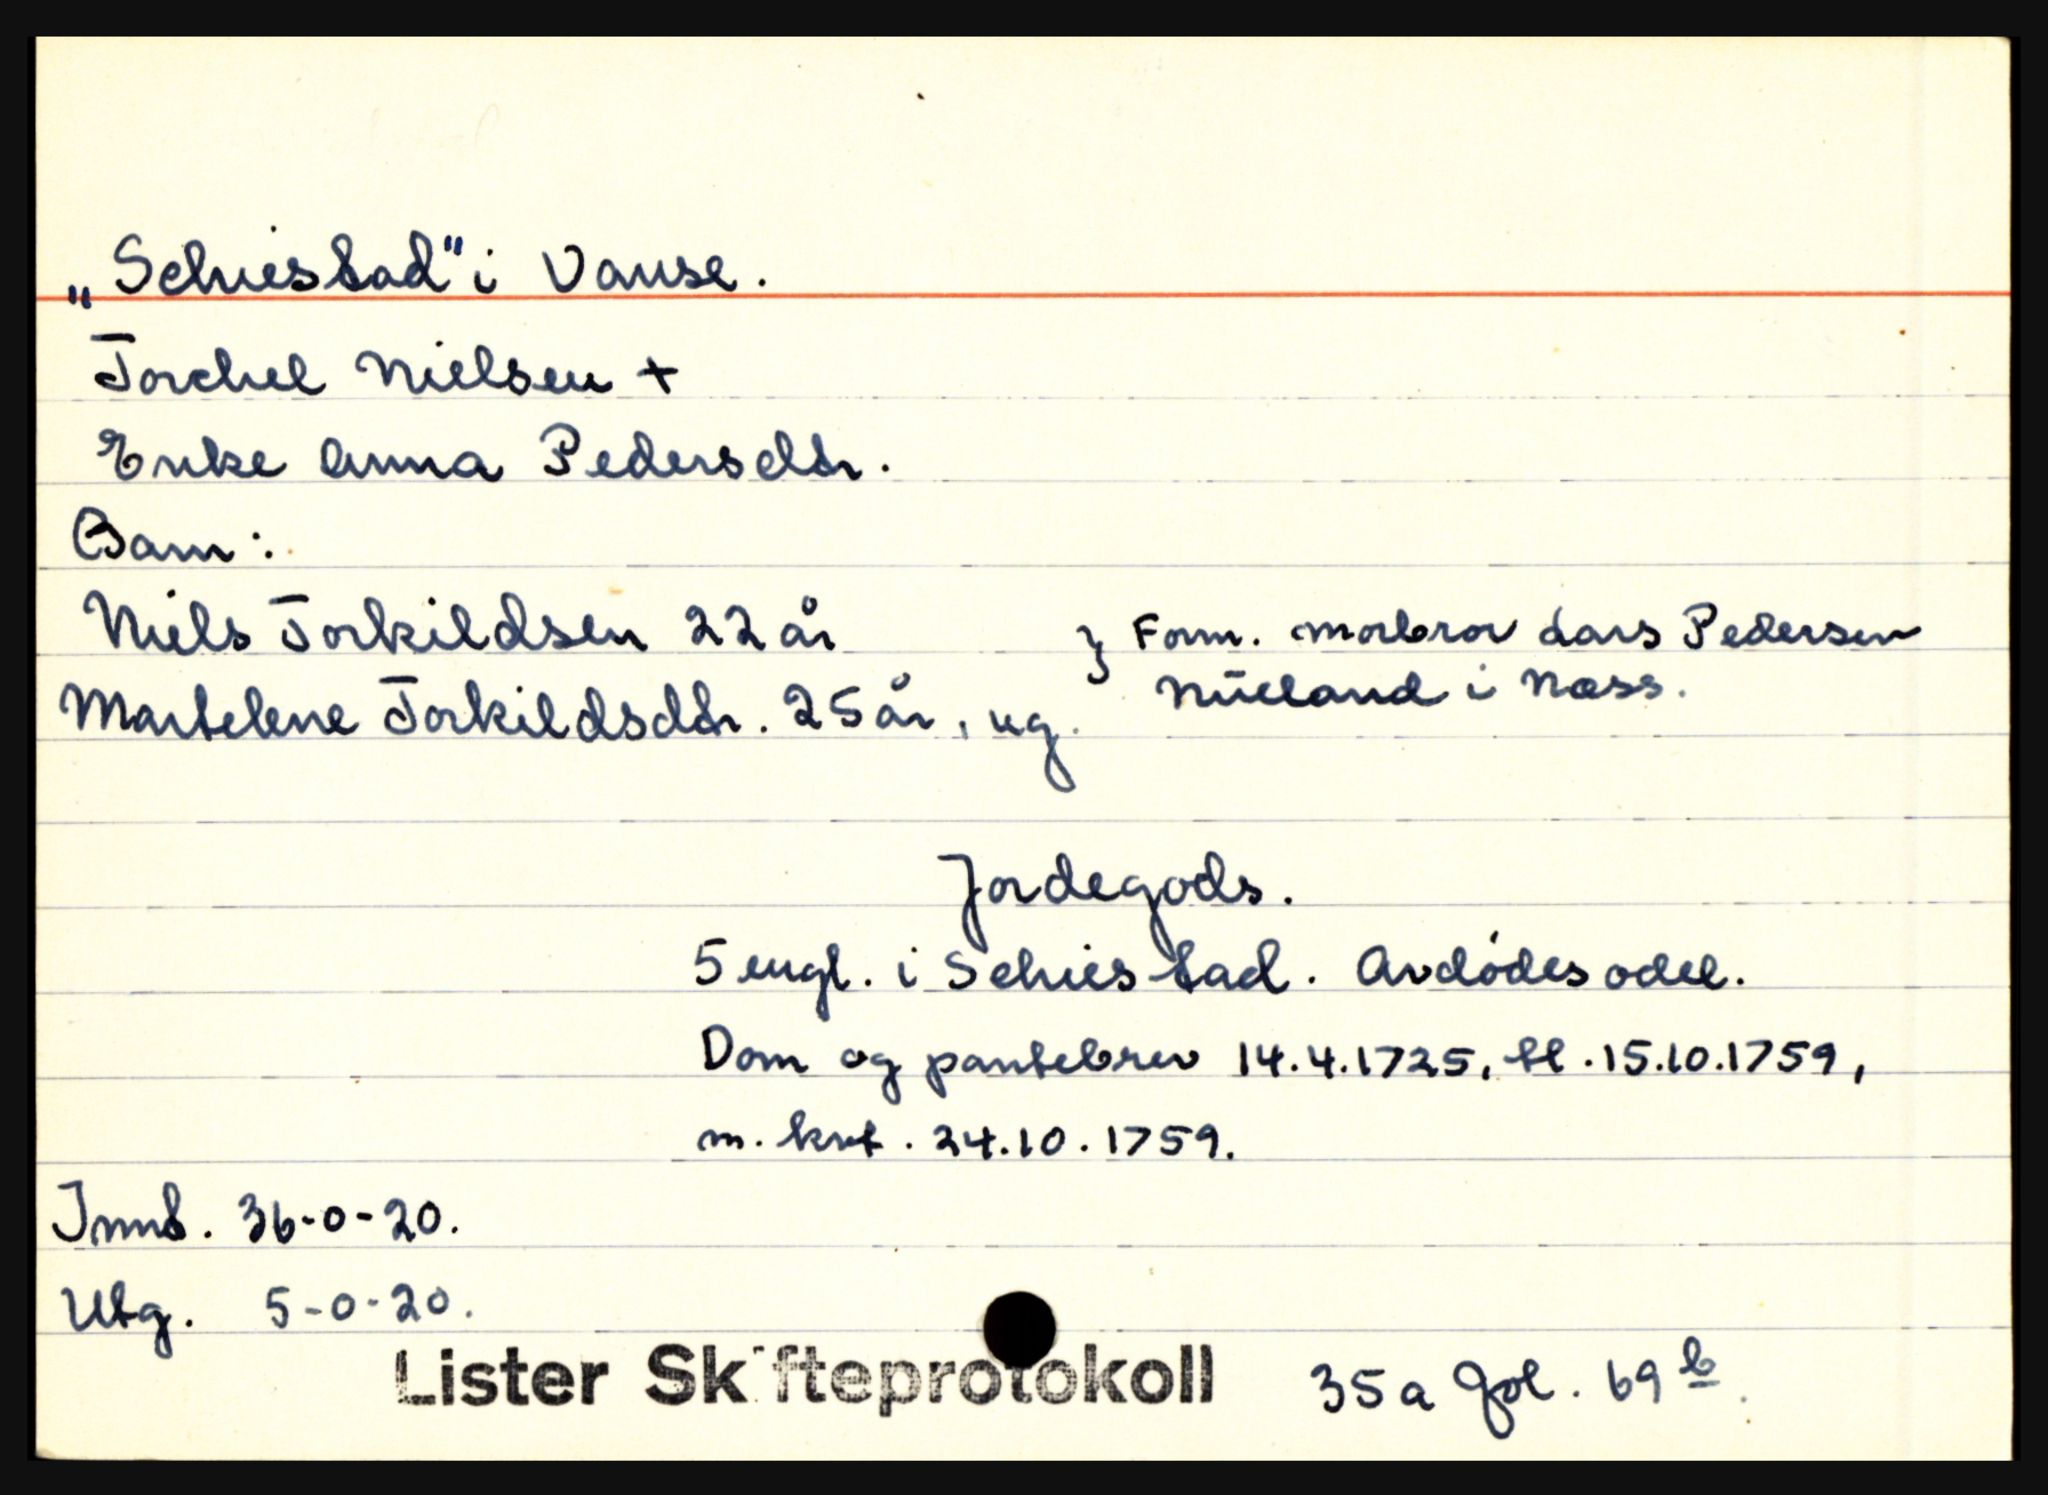 „Schiestad" i Vanse.
Torchel Nielsen +
Enke Anna Pedersdtr.
Barn:
Niels Torkildsen 22 år } Form. morbror Lars Pedersen
Nüeland i Næss.
Martelene Torkildsdtr. 25 år, ug.
Jordegods.
5 engl. i Schiestad. Avdødes odel.
Dom og pantebrev 14.4.1725, tl. 15.10.1759,
m. kvt. 24.10.1759.
Innb. 36-0-20.
Utg. 5-0-20.
Lister Skifteprotokoll 35a fol. 69 b.